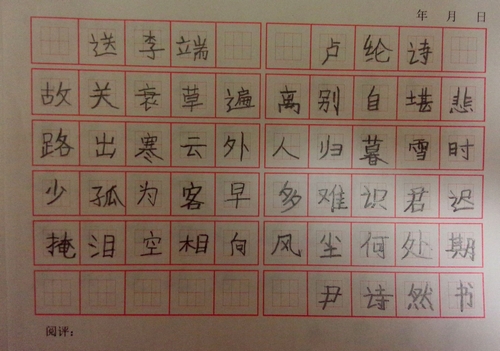 年 月 日
送李端 卢纶诗
故关衰草遍 离别自堪悲
路出寒云外 人归暮雪时
少孤为客早 多难识君迟
掩泪空相向 风尘何处期
尹诗然书
阅评：